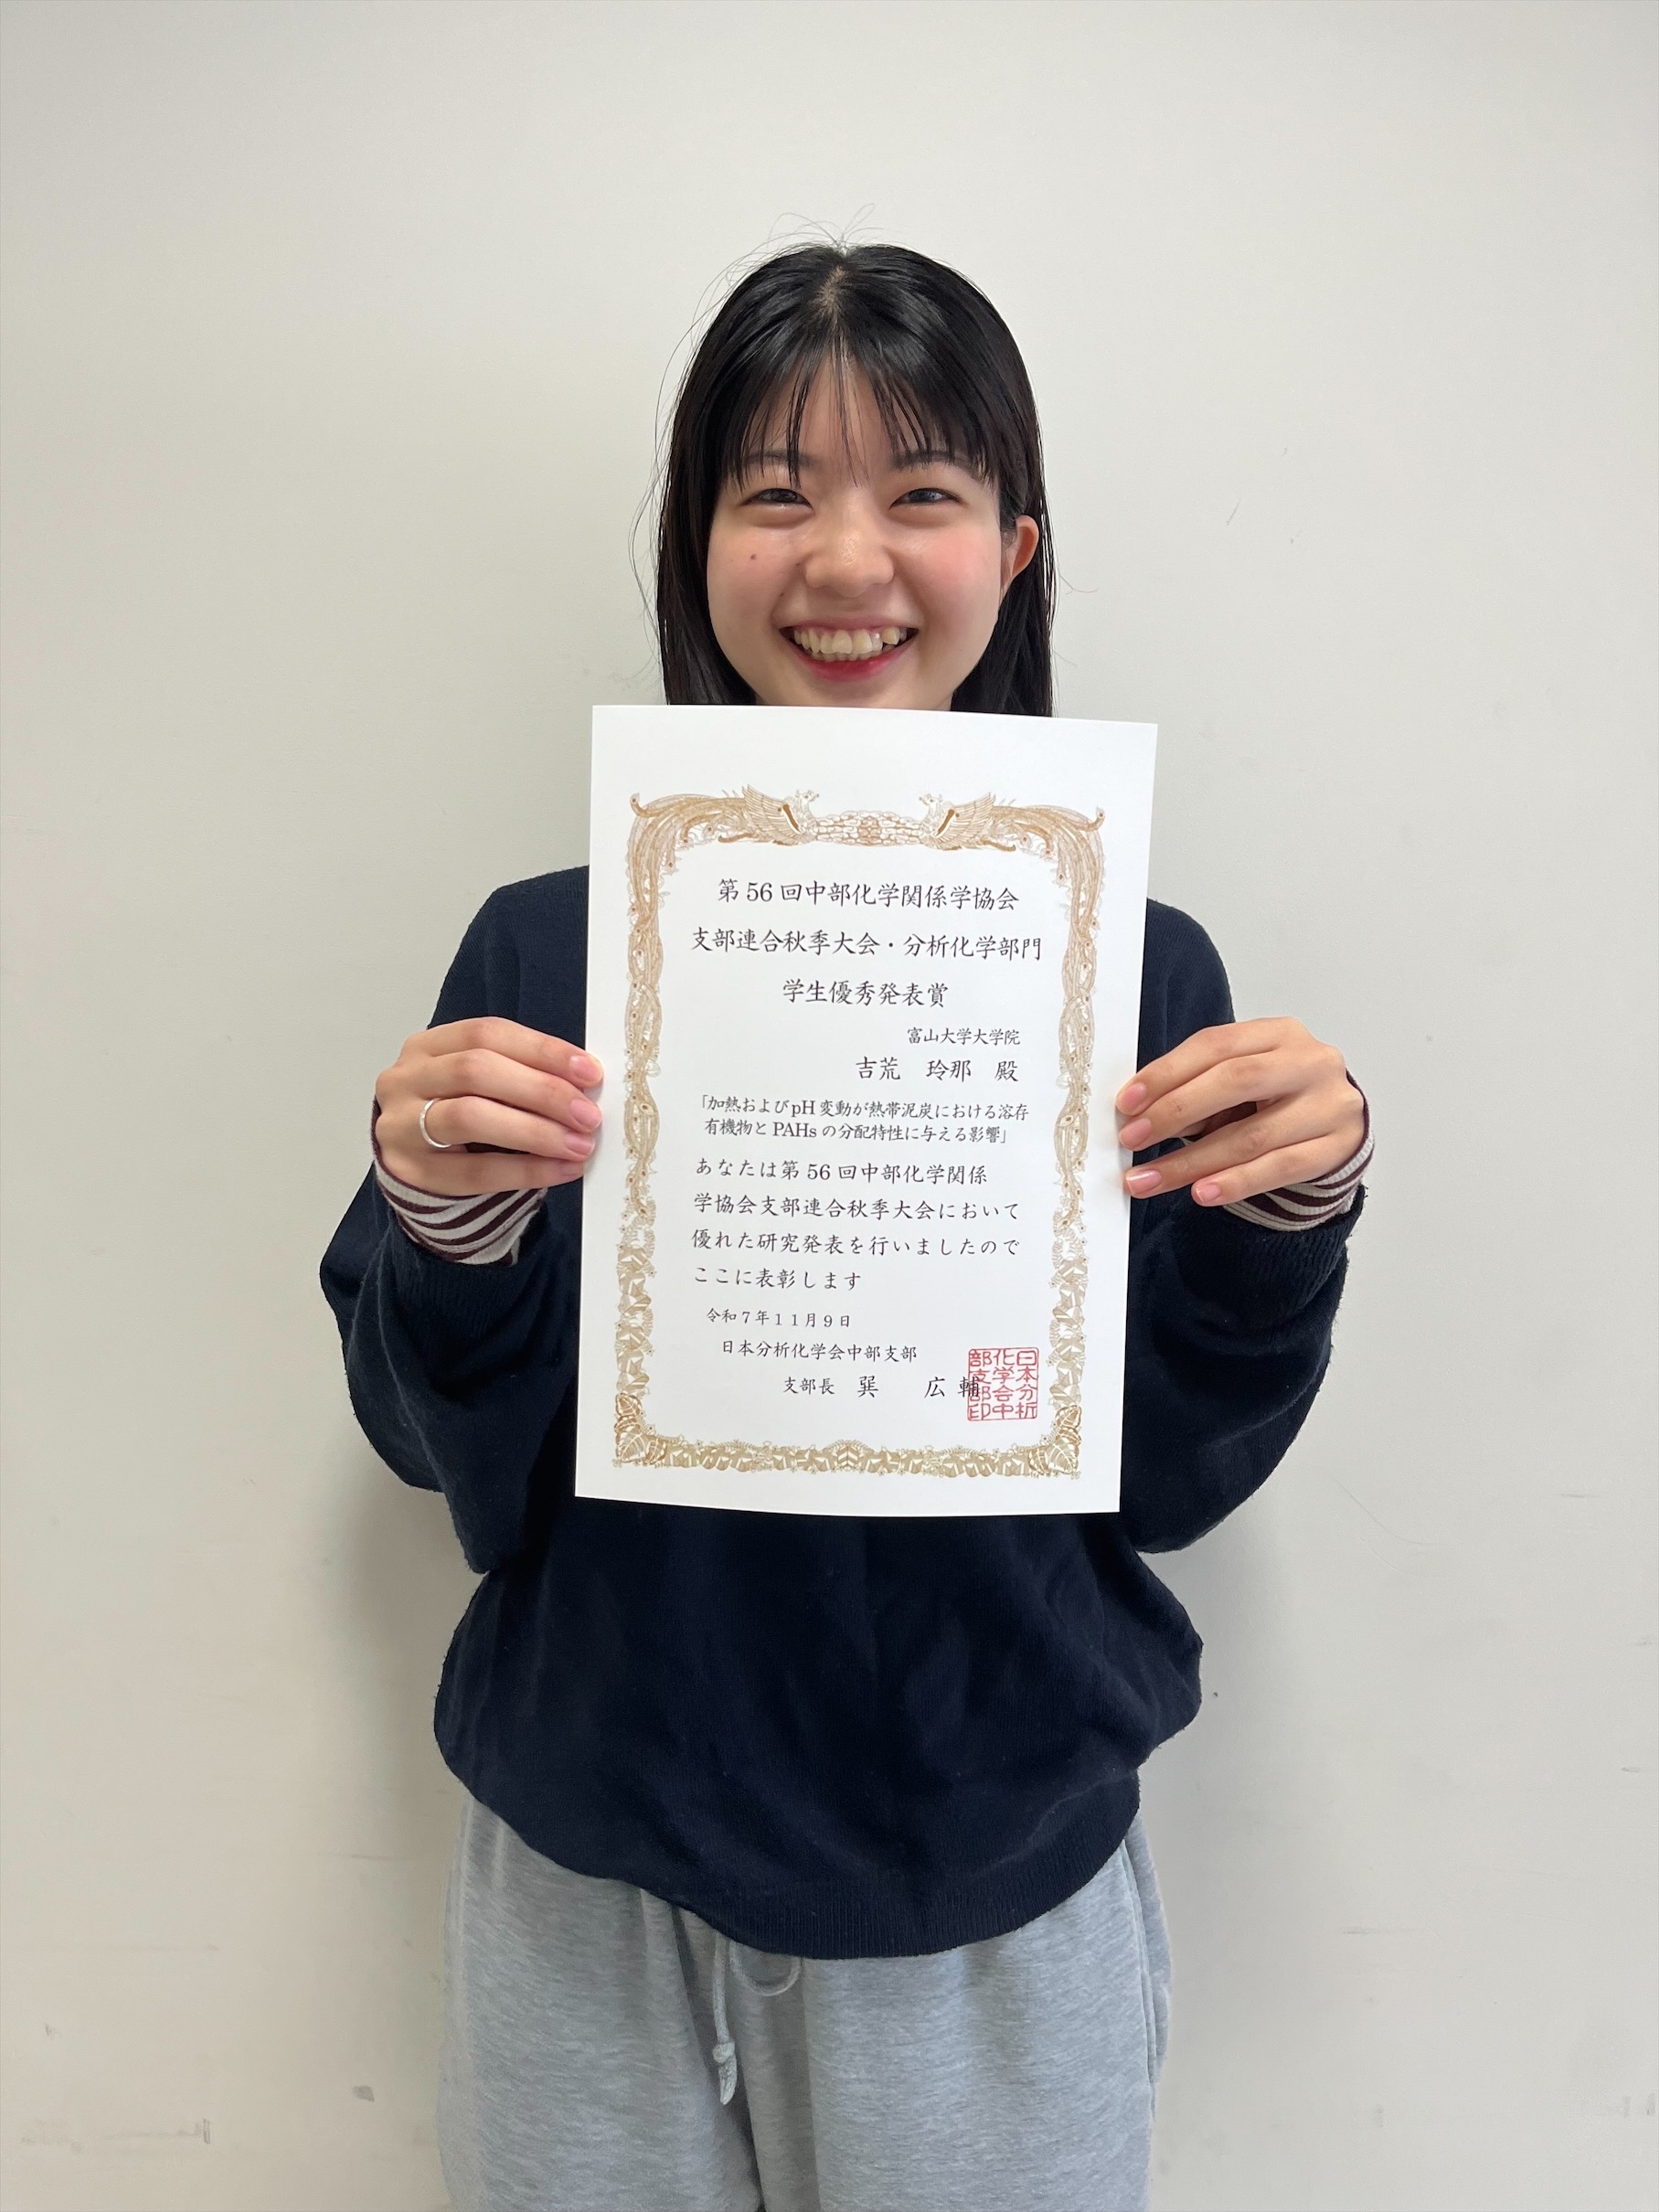 第56回中部化学関係学協会
支部連合秋季大会・分析化学部門
学生優秀発表賞
富山大学大学院
吉荒 玲那 殿
「加熱およびpH変動が熱帯泥炭における溶存
有機物とPAHsの分配特性に与える影響」
あなたは第56回中部化学関係
学協会支部連合秋季大会において
優れた研究発表を行いましたので
ここに表彰します
令和7年11月9日
日本分析化学会中部支部
支部長 巽 広輔
日本分析
化学会中
部支部印